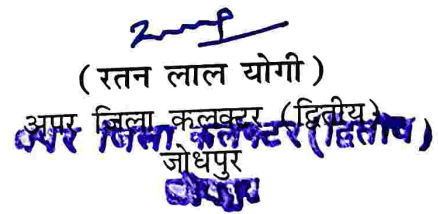 ( रतन लाल योगी )
अपर जिला कलक्टर (द्वितीय)
अपर जिला कलेक्टर (द्वितीय)
जोधपुर
जोधपुर